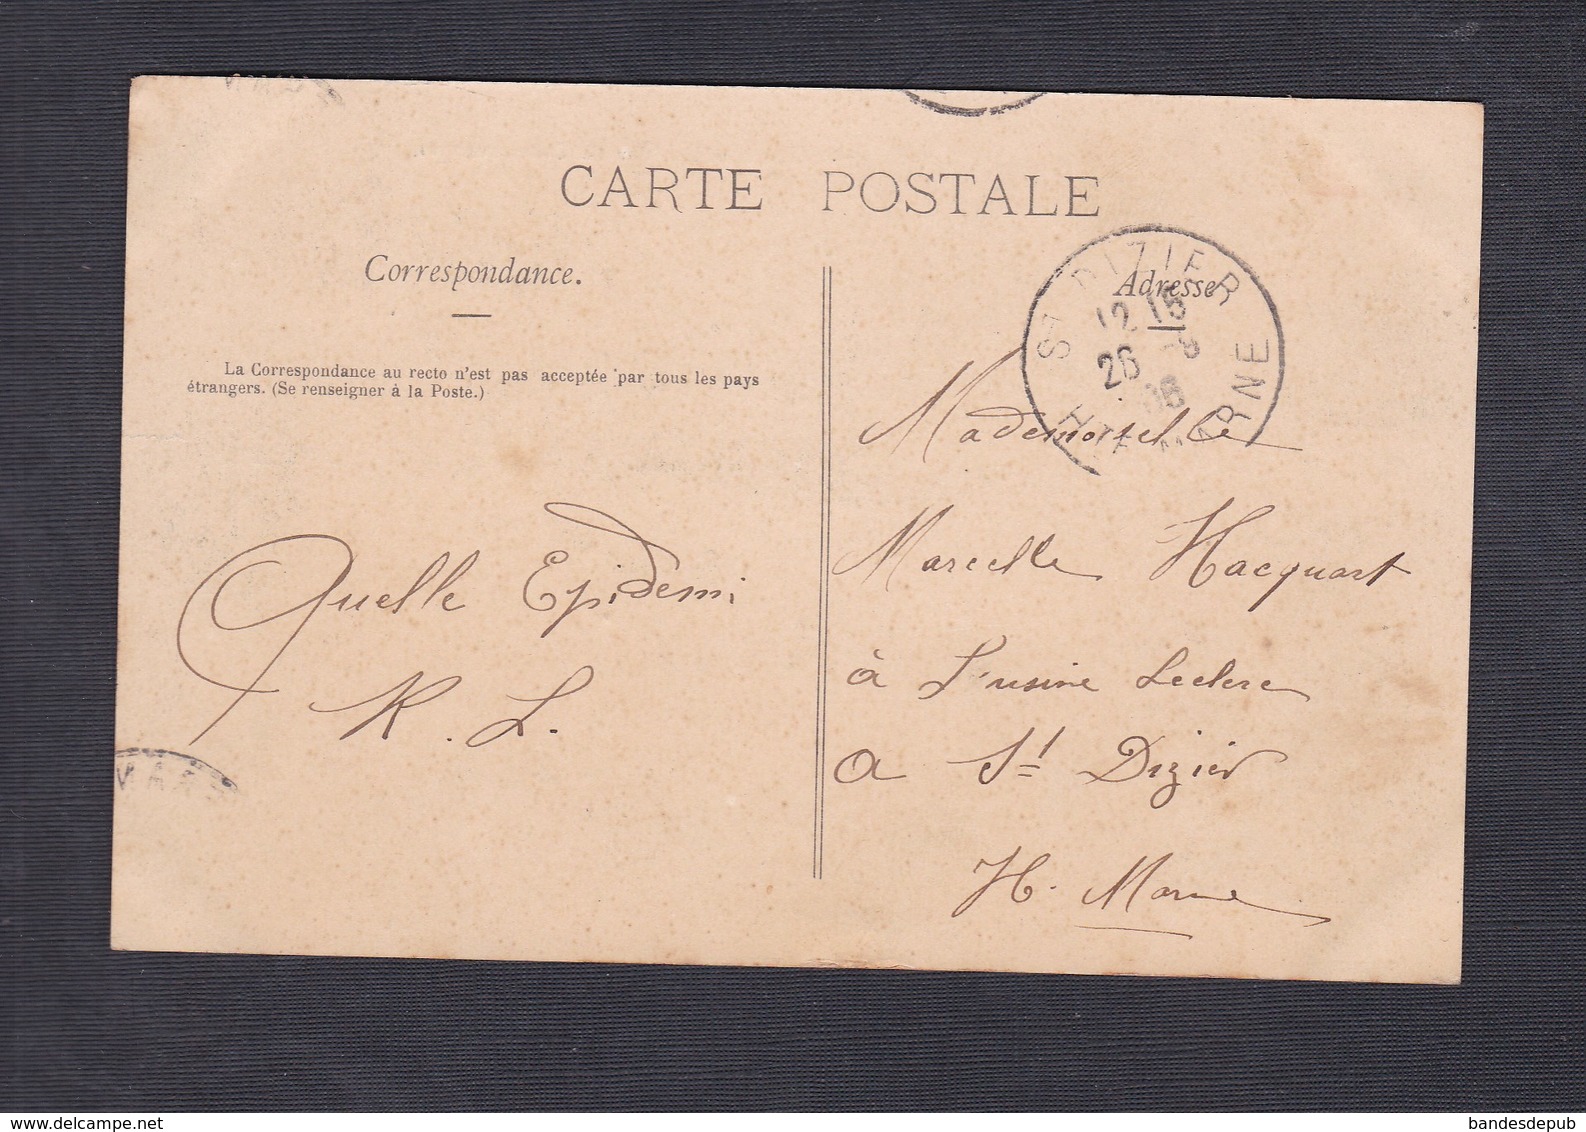 CARTE POSTALE
Correspondance.
La Correspondance au recto n'est pas acceptée par tous les pays
étrangers. (Se renseigner à la Poste.)
Quelle Epidemi
K. L.
Adresse
ST DIZIER
12 15
26 -9
06
HTE MARNE
Mademoiselle
Marcelle Hacquart
à l'usine Leclerc
a St Dizier
H. Marne
www.delcampe.net
bandesdepub